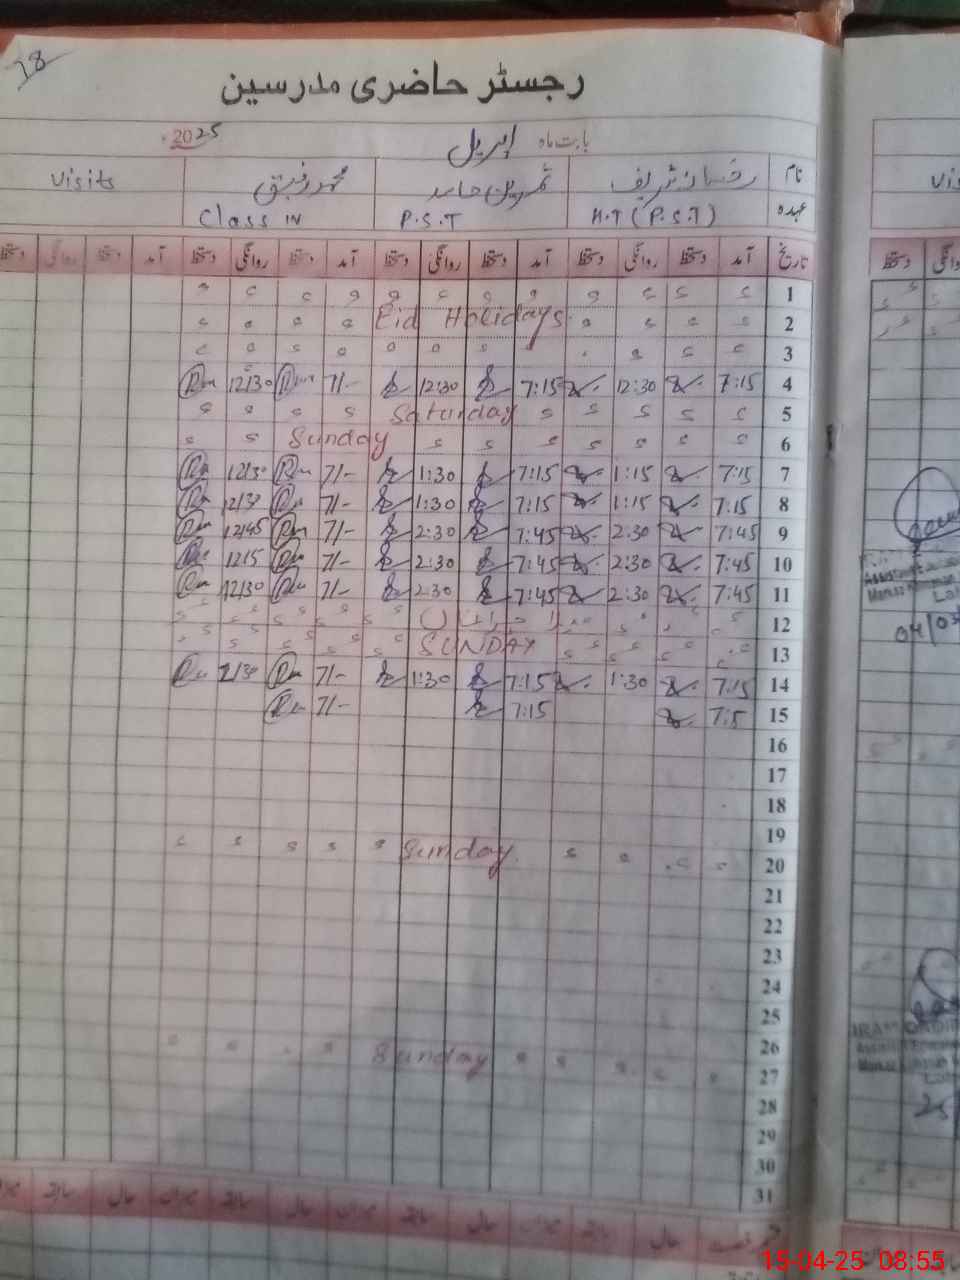 18
رجسٹر حاضری مدرسین
بابت ماہ اپریل 2025
نام رخسانہ شریف ثمرین حامد محمد رفیق Visits
عہدہ H.T (P.S.T) P.S.T Class IV
تاریخ آمد دستخط روانگی دستخط آمد دستخط روانگی دستخط آمد دستخط روانگی دستخط آمد دستخط روانگی دستخط
1
2 Eid Holidays
3
4 7:15 12:30 7:15 12:30 7/- 12/30
5 Saturday
6 Sunday
7 7:15 1:15 7:15 1:30 7/- 12/30
8 7:15 1:15 7:15 1:30 7/- 12/30
9 7:45 2:30 7:45 2:30 7/- 12/45
10 7:45 2:30 7:45 2:30 7/- 12/5
11 7:45 2:30 7:45 2:30 7/- 12/30
12
13 SUNDAY
14 7:15 1:30 7:15 1:30 7/- 2/30
15 7:5 7:15 7/-
16
17
18
19
20 Sunday
21
22
23
24
25
26
27 Sunday
28
29
30
31
حال سابقہ میزان حال سابقہ میزان حال سابقہ میزان حال سابقہ
15-04-25 08:55